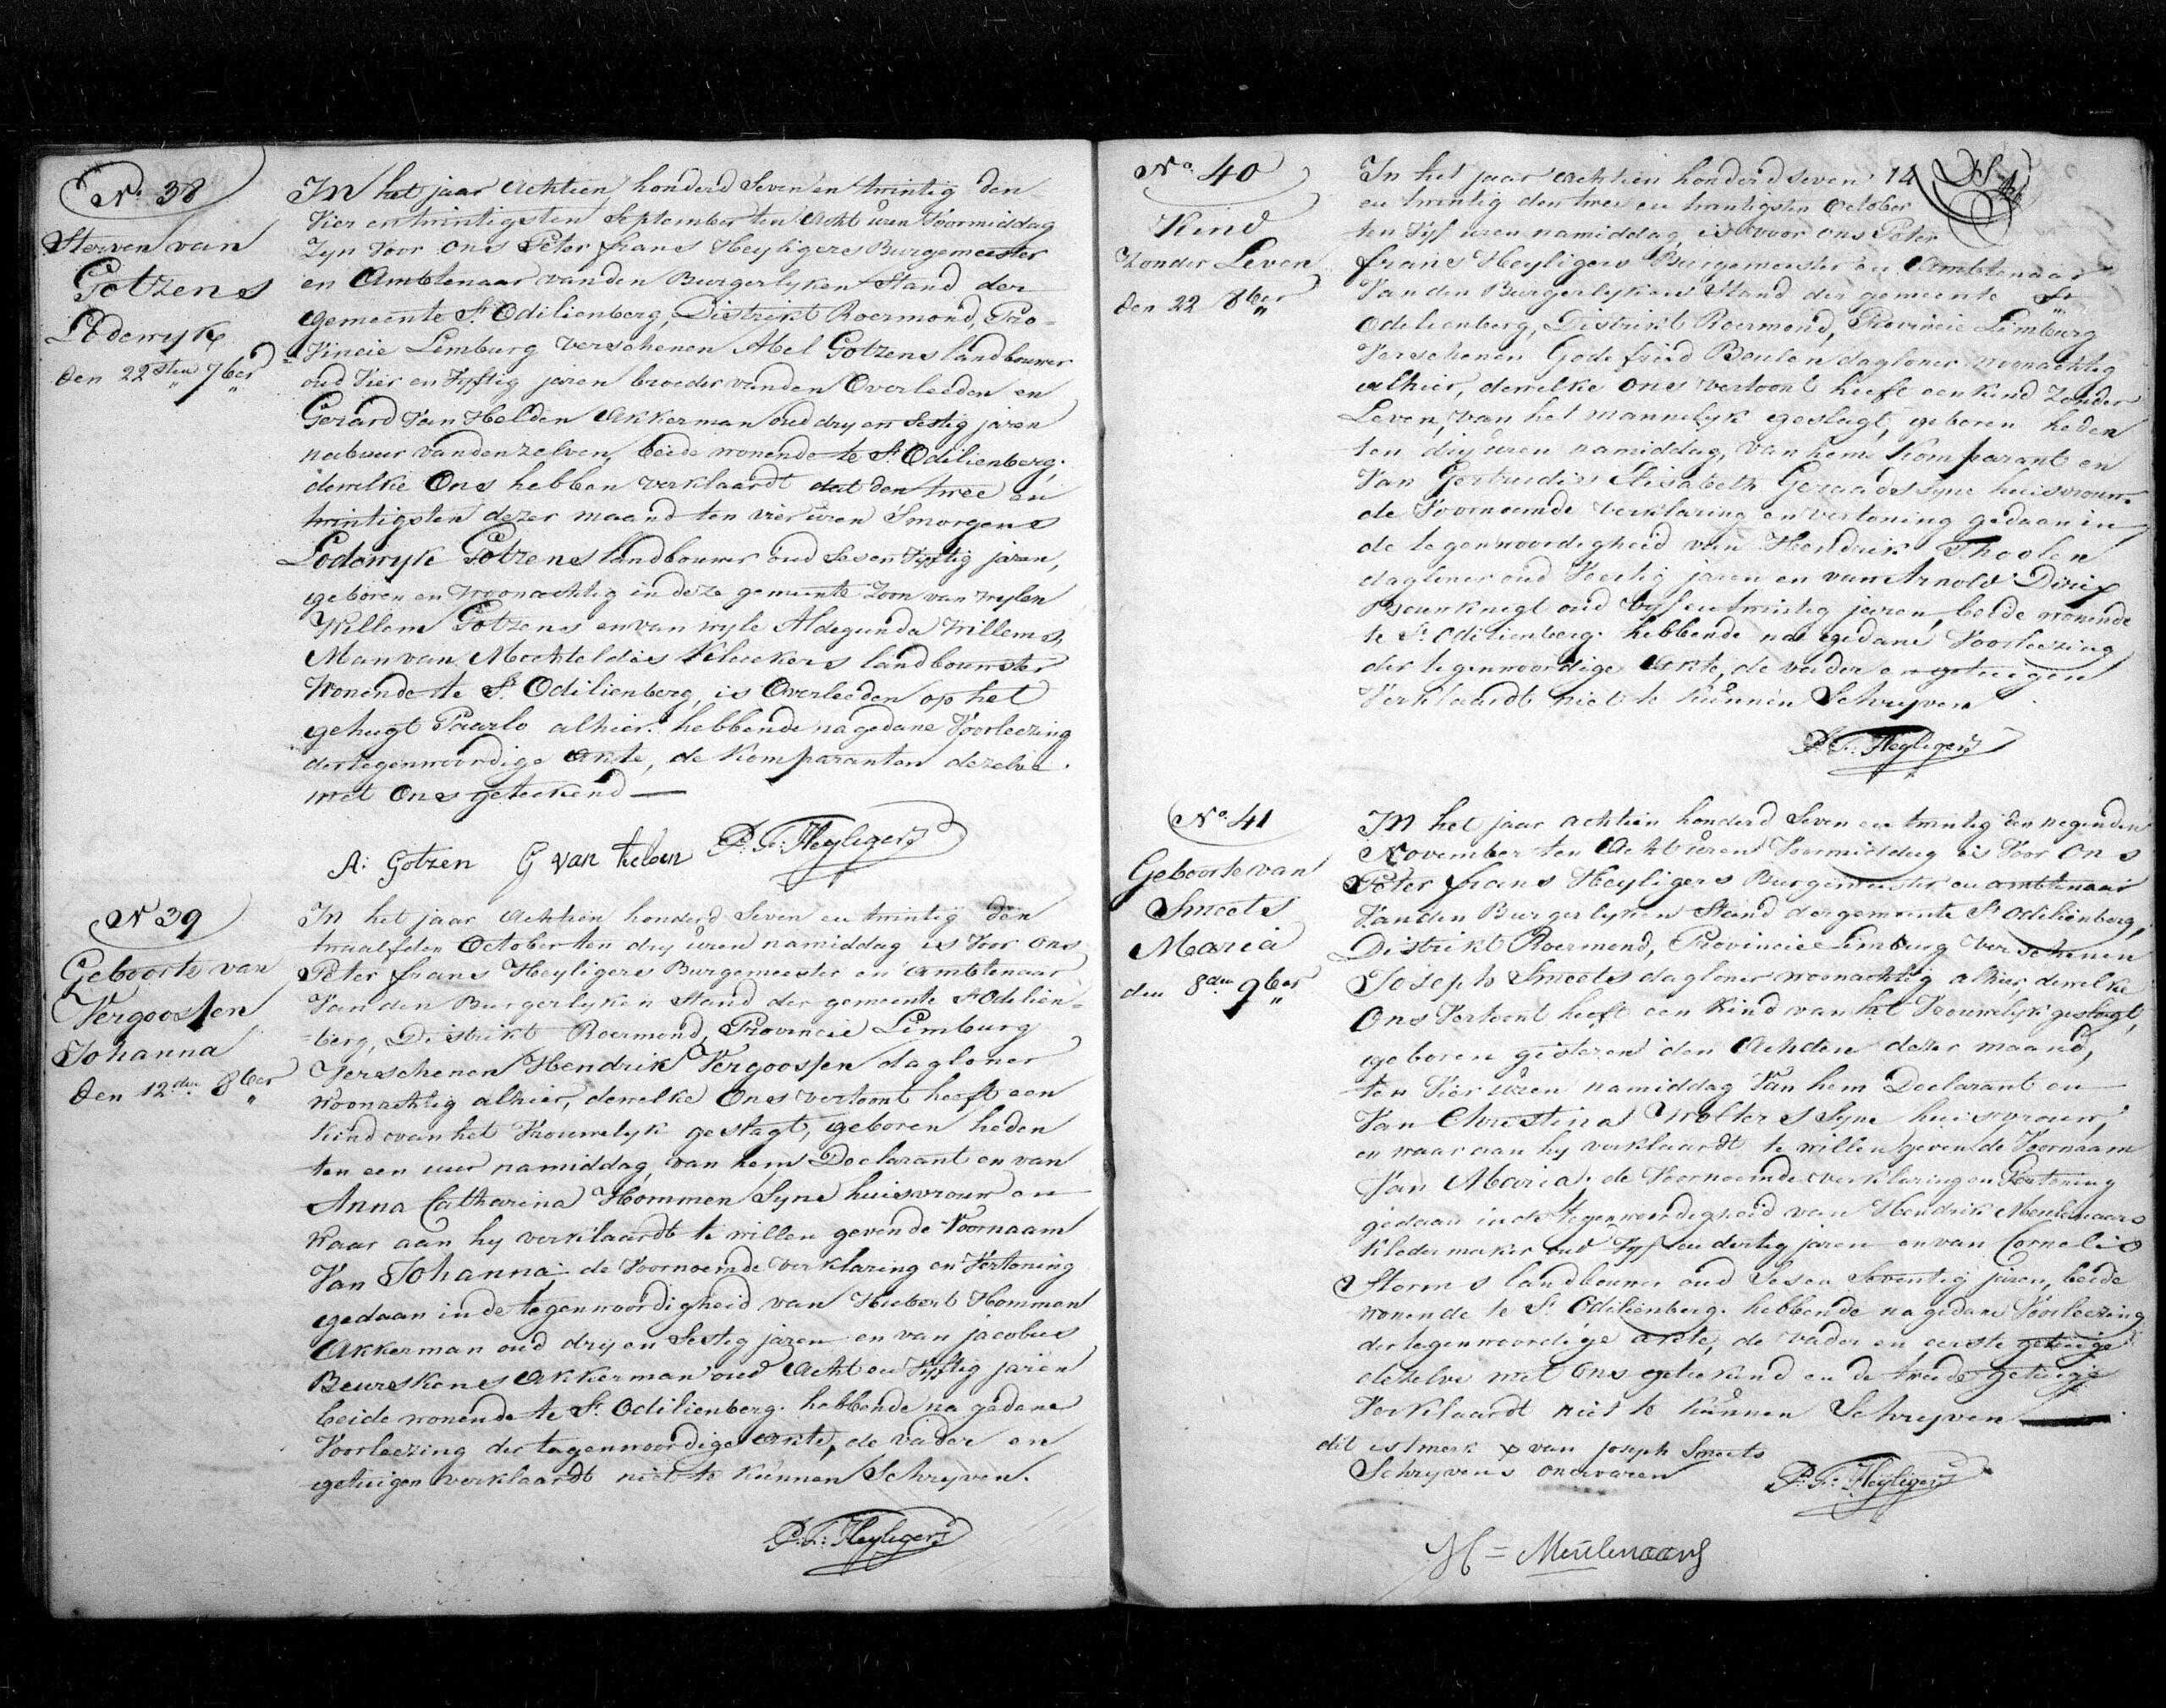 No. 38
Sterven van
Gotzens
Lodewyk
den 22sten 7ber
In het jaar achtien honderd Seven en twintig den
Vier en twintigsten September ten Acht uren Voormiddag
Zyn Voor Ons Peter frans Heyligers Burgemeester
en Ambtenaar van den Burgerlyken Stand der
gemeente St Odilienberg, Distrikt Roermond, Pro-
=Vincie Limburg Verschenen Abel Gotzens landbouwer
oud Vier en Vyftig jaren broeder van den Overleeden en
Gerard Van Helden Akkerman oud dry en Sestig jaren
nabuur van den zelven, beide wonende te St Odilienberg;
dewelke Ons hebben verklaardt dat den twee en
twintigsten dezer maand ten vier uren Smorgens
Lodewyk Gotzens landbouwer oud Sesen Vyftig jaren,
geboren en woonachtig in deze gemeente Zoon van wylen
Willem Gotzens en van wyle Aldegunda Willems,
Man van Mechteldis Kluckers landbouwster
Wonende te St Odilienberg, is Overleeden op het
gehugt Paarlo alhier. hebbende na gedane Voorleezing
der tegenwoordige Akte, de Komparanten dezelve
met Ons geteekend —
A: Gotzen G van helden P: F: Heyligers
N 39
Geboorte van
Vergoossen
Johanna
den 12den 8ber
In het jaar Achtien honderd Seven en twintig den
twaalfden October ten dry uren namiddag is Voor Ons
Peter frans Heyligers Burgemeester en Ambtenaar
Van den Burgerlyken Stand der gemeente St Odilien=
=berg, Distrikt Roermond, Provincie Limburg
Verschenen Hendrik Vergoossen dagloner
woonachtig alhier, dewelke Ons vertoont heeft een
Kind van het Vrouwelyk geslagt, geboren heden
ten een uur namiddag, van hem Declarant en van
Anna Catharina Hommen Syne huisvrouw en
Waar aan hy verklaardt te willen geven de Voornaam
Van Johanna; de Voornoemde verklaring en Vertoning
gedaan in de tegenwoordigheid van Hubert Hommen
Akkerman oud dry en Sestig jaren en van jacobus
Beurskens Akkerman oud Acht en Vyftig jaren
beide wonende te St Odilienberg. hebbende na gedane
Voorleezing der tegenwoordige akte, de vader en
getuigen verklaardt niet te kunnen Schryven.
P. F: Heyligers
No. 40
Kind
Zonder Leven
den 22 8ber
In het jaar achtien honderd seven 14
en twintig den twee en twintigsten October
ten Vyf uren namiddag, is voor ons Peter
frans Heyligers Burgemeester en Ambtenaar
Van den Burgerlyken Stand der gemeente St
Odilienberg, Distrikt Roermond, Provincie Limburg
Verschenen Godefried Beulen dagloner woonachtig
alhier, dewelke ons vertoont heeft een kind Zonder
Leven, van het mannelyk geslagt, geboren heden
ten dry uren namiddag, van hem Komparant en
Van Gertrudis Elisabeth Geraads syne huisvrouw.
de Voornoemde verklaring en vertoning gedaan in
de tegenwoordigheid van Hendrik Thoolen
dagloner oud Veertig jaren en van Arnold Dirix
Bouwknegt oud Vyf en twintig jaren, beide wonende
te St Odilienberg. hebbende na gedane Voorleezing
der tegenwoordige akte, de vader en getuigen
Verklaardt niet te kunnen Schryven
P. F: Heyligers
No. 41
Geboorte van
Smeets
Maria
den 8den 9ber
In het jaar achtien honderd Seven en twintig den negenden
November ten Acht uren Voormiddag is Voor Ons
Peter frans Heyligers Burgemeester en ambtenaar
Van den Burgerlyken Stand der gemeente St Odilienberg,
Distrikt Roermond, Provincie Limburg Verschenen
Joseph Smeets dagloner woonachtig alhier, dewelke
Ons Vertoont heeft een Kind van het Vrouwelyk geslagt,
geboren gisteren den Achsten dezer maand,
ten Vier uren namiddag Van hem Declarant en
Van Christina Wolters Syne huisvrouw,
en waar aan hy verklaardt te willen geven de Voornaam
Van Maria; de Voornoemde verklaring en Vertoning
gedaan in de tegenwoordigheid van Hendrik Meulenaars
Kledermaker oud Vyf en dertig jaren en van Cornelis
Storms landbouwer oud Sesen Seventig jaren, beide
wonende te St Odilienberg. hebbende na gedane Voorleezing
der tegenwoordige akte, de vader en eerste getuige
dezelve met Ons geteekend en de tweede getuige
Verklaardt niet te kunnen Schryven
dit is tmerk x van Joseph Smeets
Schryvens onervaren P: F: Heyligers
H = Meulenaars